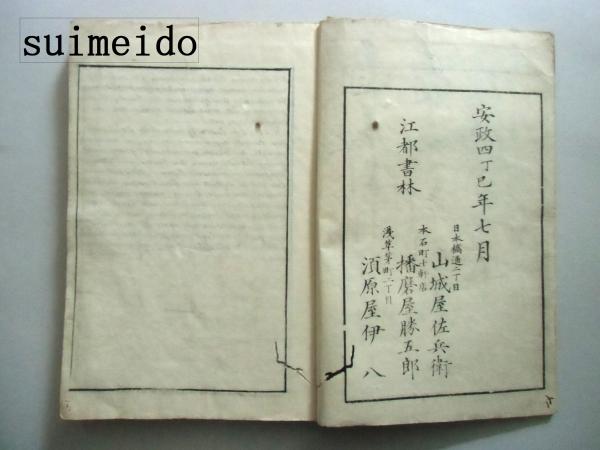 suimeido
安政四丁巳年七月
江都書林
日本橋通二丁目
山城屋佐兵衛
本石町十軒店
播磨屋勝五郎
淺草茅町二丁目
須原屋伊八